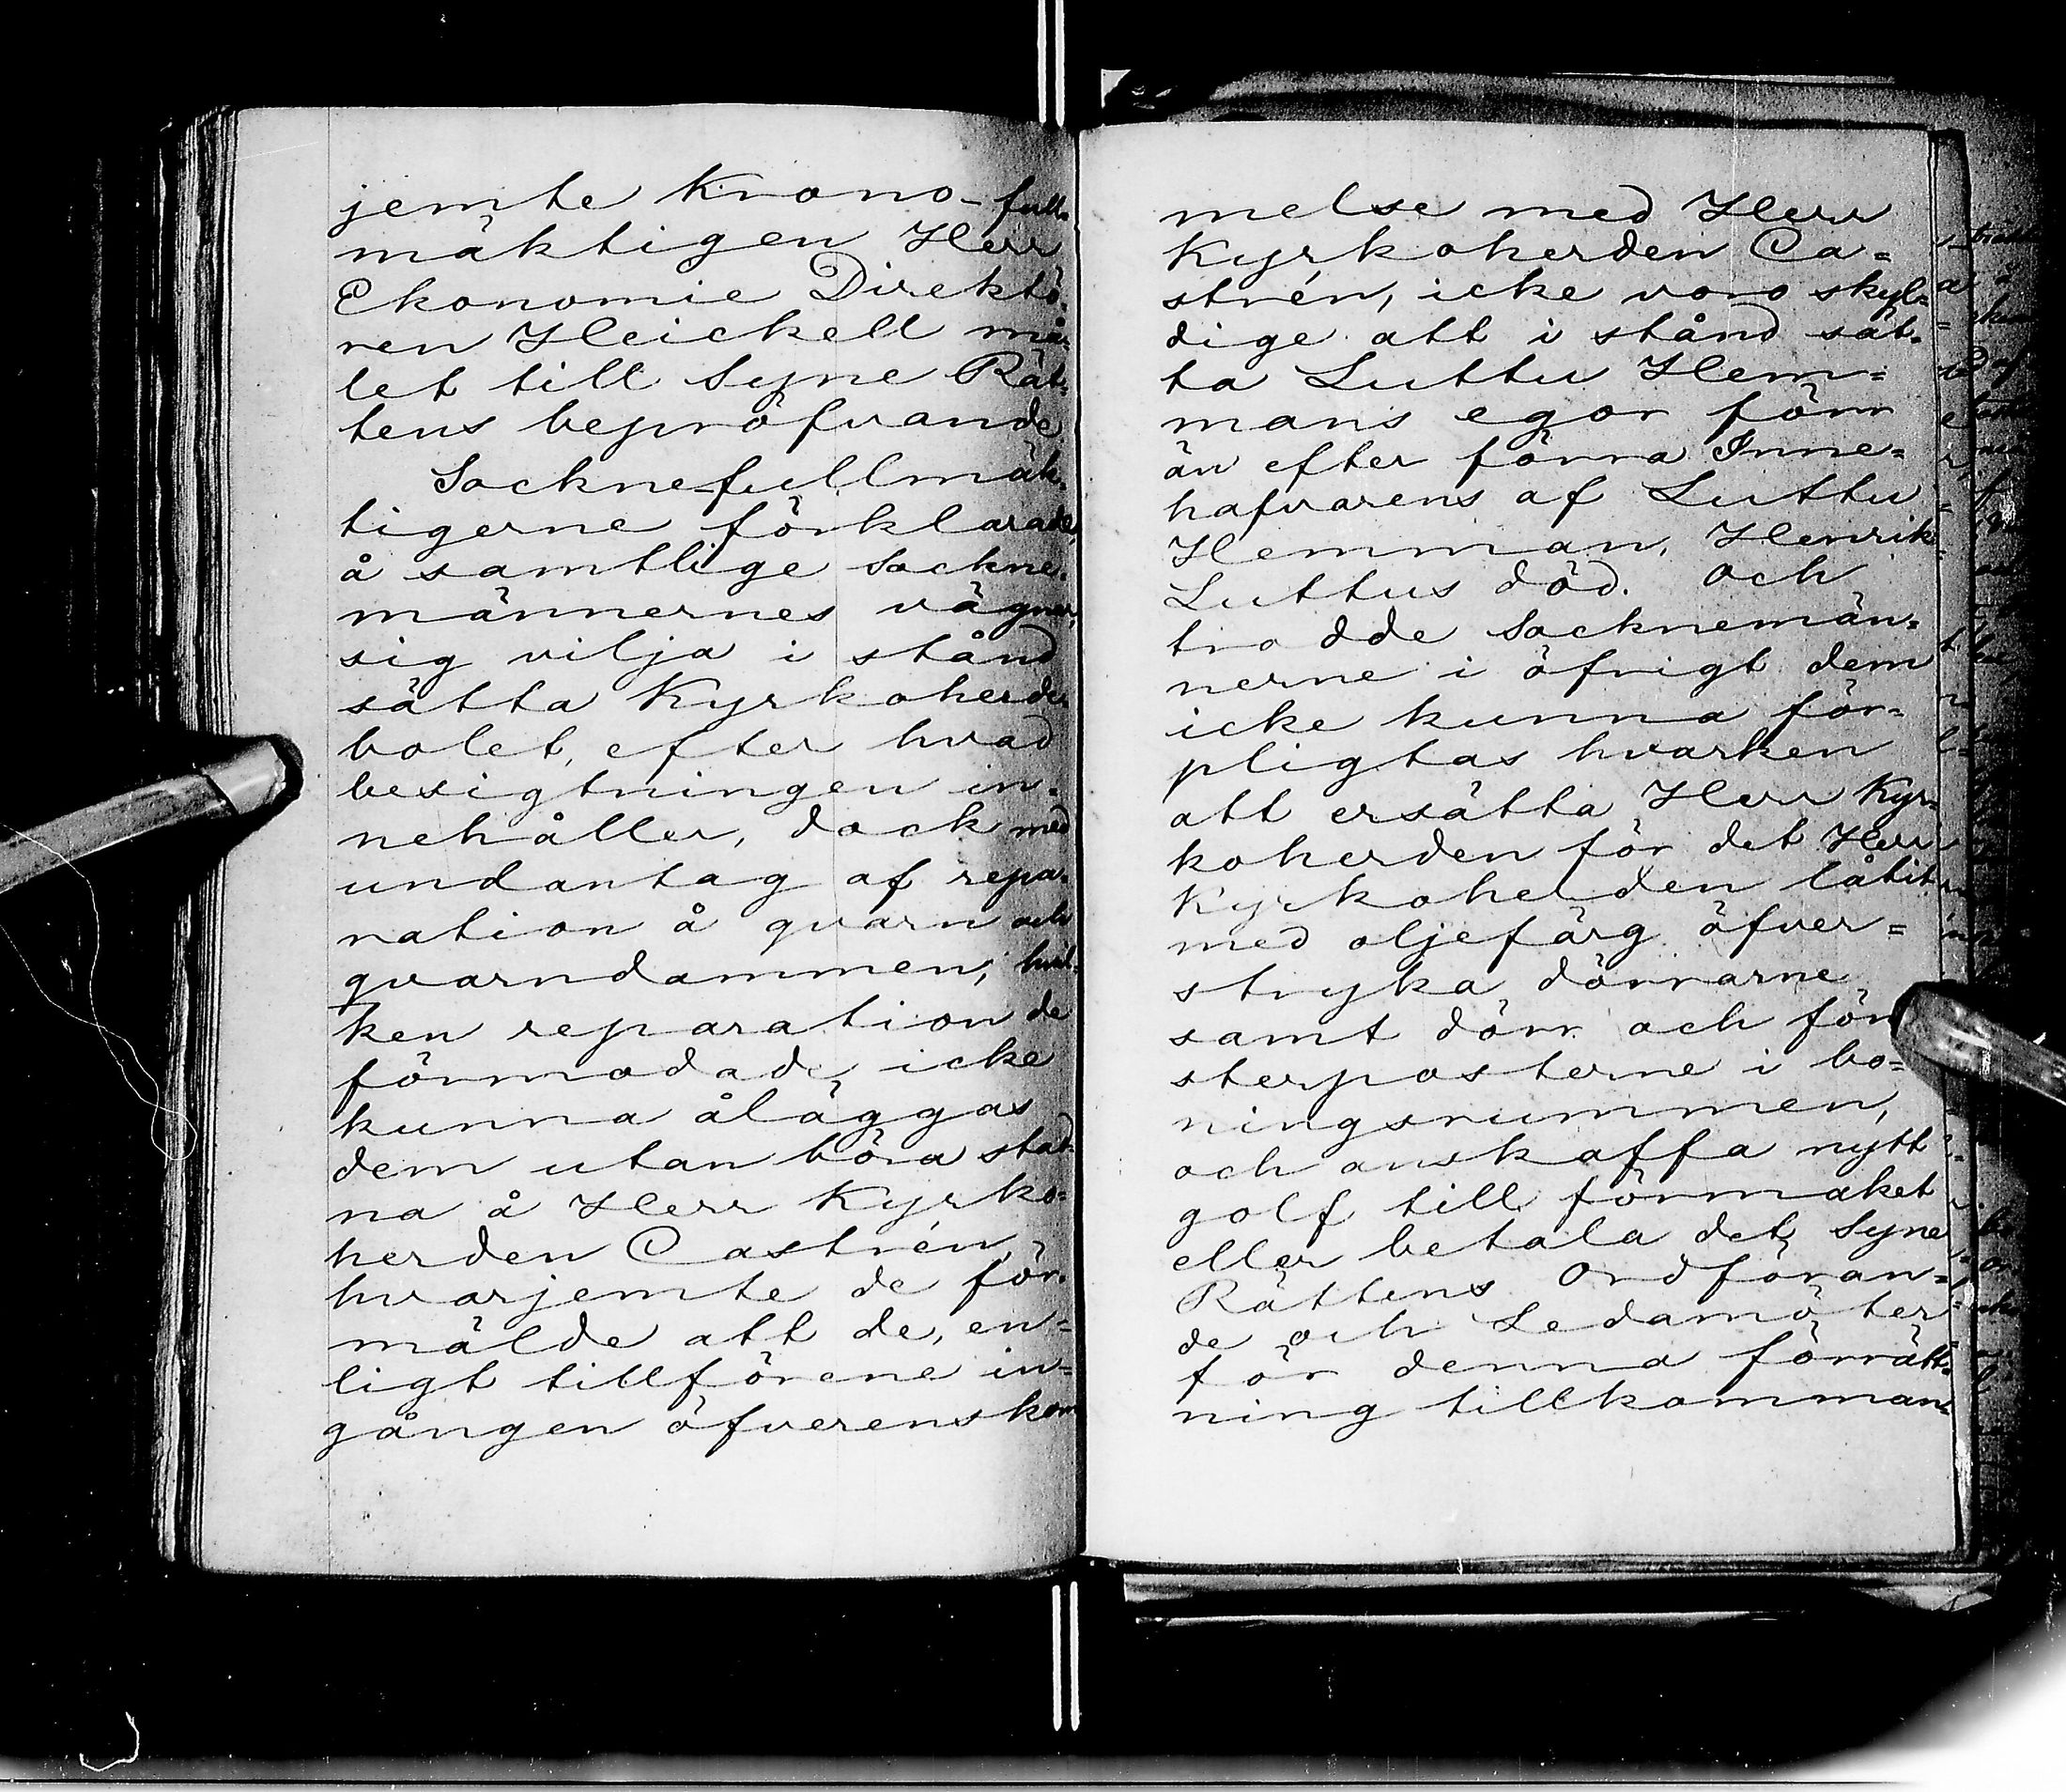 jemte Krono-full-
mäktigen Herr
Ekonomie Direktö-
ren Heickell må-
let till Syne Rät-
tens bepröfvande
Sockne-fullmäk-
tigerne förklarade,
å samtlige Sockne-
männernes vägner,
sig vilja i stånd
sätta Kyrkoherde
bolet, efter hvad
besigtningen in-
nehåller, dock med
undantag af repa-
ration å qvarn och
qvarndammen, hvil-
ken reparation de
förmodade icke
kunna åläggas
dem utan böra stad-
na å Herr Kyrko-
herden Castrén,
hvarjemte de för-
mälde att de, en-
ligt tillförene in-
gången öfverenskom
melse med Herr
Kyrkoherden Ca-
strén, icke voro skyl-
dige att i stånd sät-
ta Luttu Hem-
mans egor förr
än efter förra Inne-
hafvarens af Luttu
Hemman, Henrik
Luttus död. och
trodde Socknemän-
nerne i öfrigt dem
icke kunna för-
pligtas hvarken
att ersätta Herr Kyr-
koherden för det Herr
Kyrkoherden låtit
med oljefärg öfver-
stryka dörrarne
samt dörr och fön
sterposterne i bo-
ningsrummen,
och anskaffa nytt
golf till förmaket
eller betala det Syne
Rättens Ordföran-
de och Ledamöter
för denna förrätt-
ning tillkomman-